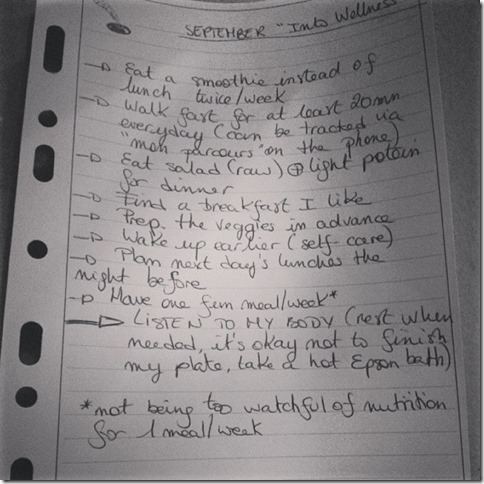 SEPTEMBER "Into Wellness
→ Eat a smoothie instead of
lunch twice/week
→ Walk fast for at least 20mn
everyday (can be tracked via
"mon parcours" on the phone)
→ Eat salad (raw) ⊕ light potein
for dinner
→ Find a breakfast I like
→ Prep. the veggies in advance
→ Wake up earlier (self-care)
→ Plan next day's lunches the
night before
→ Have one fun meal/week*
→ LISTEN TO MY BODY (rest when
needed, it's okay not to finish
my plate, take a hot Epson bath)
*not being too watchful of nutrition
for 1 meal/week